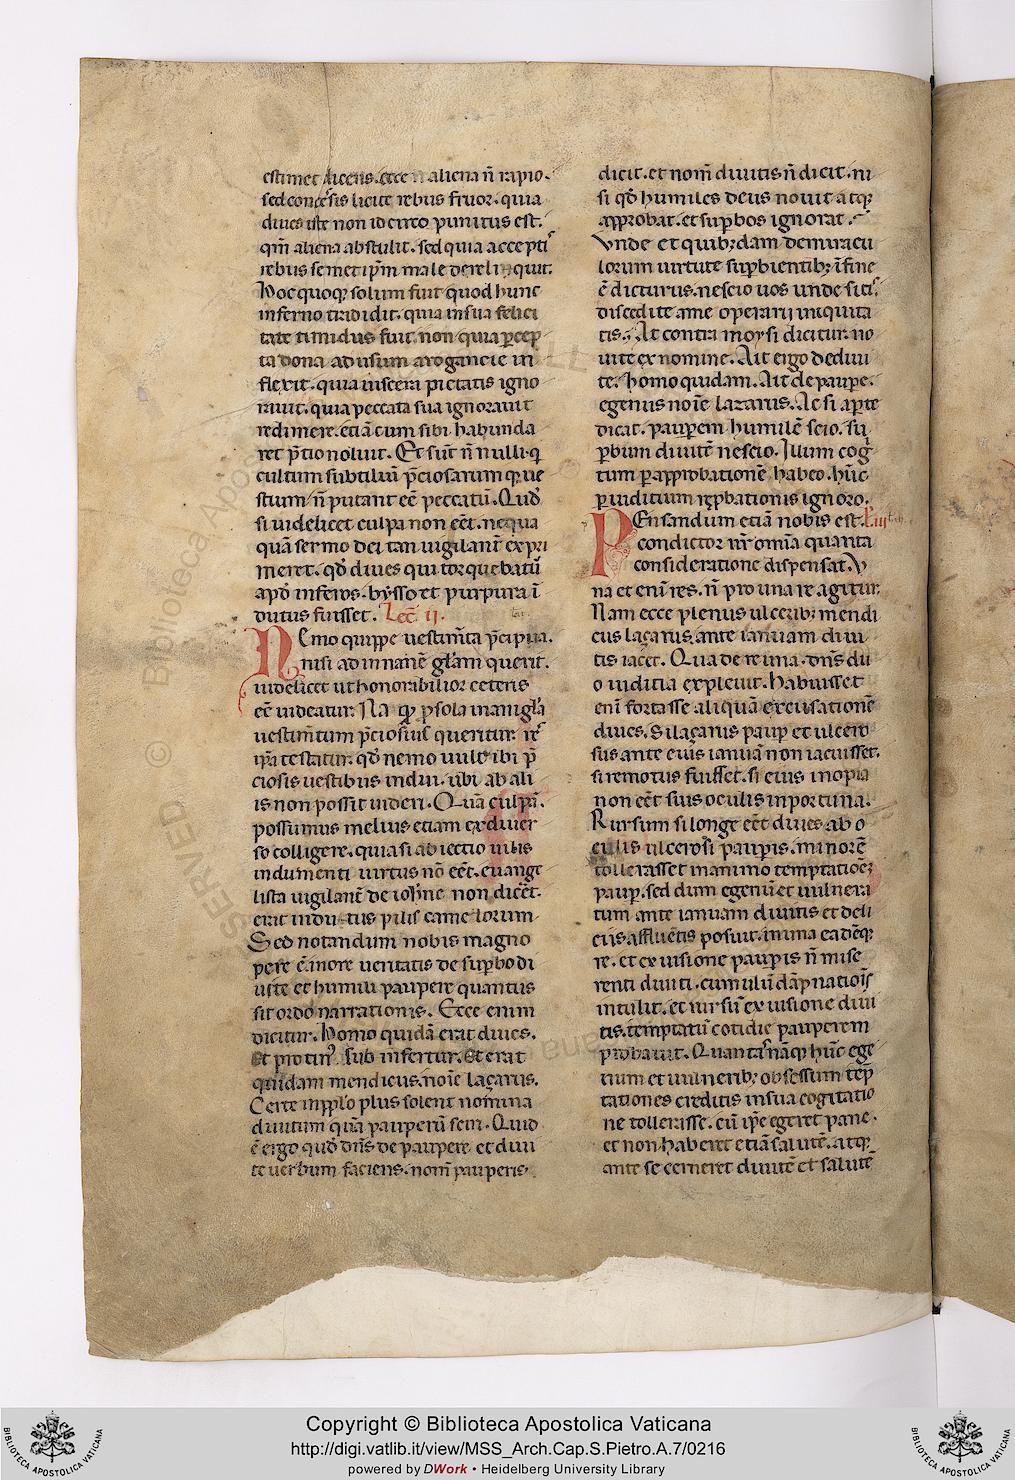 estimet dicens. ecce aliena ñ rapio.
sed concessis licite rebus fruor. quia
diues iste non idcirco punitus est.
qm̃ aliena abstulit. sed quia acceptis
rebus semet ip̃m male dereliquit.
Hoc quoq; solum fuit quod hunc
inferno tradidit. quia in sua felici
tate timidus fuit. non quia p̱cep
ta dona ad usum arogancie in
flexit. quia uiscera pietatis igno
rauit. quia peccata sua ignorauit
redimere. etiã cum sibi habunda
ret p̃tio noluit. Et sũt ñ nulli. q
cultum subtiliũ p̃ciosarum q; ue
stium ñ putant eẽ peccatũ. Quod
si uidelicet culpa non eẽt. nequa
quã sermo dei tam uigilant̃ expri
meret. qđ diues qui torquebatũ
apđ inferos. bysso et purpura ĩ
dutus fuisset. Lec̃ ii.
Nemo quippe uestim̃ta p̃cipua.
nisi ad innanẽ gl̃am querit.
uidelicet ut honorabilior ceteris
eẽ uideatur. Na q; p̱ sola inani gl̃a
uestim̃tum p̃ciosius queritur. res
ip̃a testatur. qđ nemo uult ibi p̃
ciosis uestibus indui. ubi ab ali
is non possit uideri. Quã culpã.
possumus melius etiam ex diuer
so colligere. quia si abiectio uilis
indumenti uirtus nõ eẽt. euange
lista uigilant̃ de ioh̃ne non dicẽt.
erat indutus pilis camelorum.
Sed notandum nobis magno
pere ẽ. in ore ueritatis de sup̱bo di
uite et humili paupere quantus
sit ordo narrationis. Ecce enim
dicitur. Homo quidã erat diues.
Et protin9 sub infertur. Et erat
quidam mendicus. noĩe laçarus.
Certe in pp̃lo plus solent nomina
diuitum quã pauperũ sciri. Quid
ẽ ergo quod dñs de paupere et diui
te uerbum faciens. nom̃ pauperis
dicit. et nom̃ diuitis ñ dicit. ni
si qđ humiles deus nouit atq;
approbat. et sup̱bos ignorat.
Vnde et quib;dam de miracu
lorum uirtute sup̱bientib; ĩ fine
ẽ dicturus. nescio uos unde sitis
discedite a me operarii iniquita
tis. At contra moysi dicitur. no
ui te ex nomine. Ait ergo de diui
te. homo quidam. Ait de paupe.
egenus noĩe lazarus. Ac si ap̱te
dicat. paup̱em humilẽ scio. su
p̱bum diuitẽ nescio. Illum cog
tum p̱ approbationẽ habeo. hũc
p̱ iuditium rep̱bationis ignoro.
Pensandum etiã nobis est. L. iii
conditor nr̃ omĩa quanta
consideratione dispensat. V
na et enĩ res. ñ pro una re agitur.
Nam ecce plenus ulcerib; mendi
cus laçarus. ante ianuam diui
tis iacet. Qua de re una. dñs du
o iuditia expleuit. Habuisset
enĩ fortasse aliquã excusationẽ
diues. Si laçarus paup̱ et ulcero
sus ante eius ianuã non iacuisset.
si remotus fuisset. si eius inopia
non eẽt suis oculis inportuna.
Rursum si longe eẽt diues ab o
culis ulcerosi paup̱is. minorẽ
tollerasset in animo temptationẽ
paup̱. sed dum egenũ et uulnera
tum ante ianuam diuitis et deli
ciis affluẽtis posuit. in una eadẽq;
re. et ex uisione paup̱is ñ mise
renti diuiti. cumulũ dãpnationis
intulit. et rursũ ex uisione diui
tis. temptatũ cotidie pauperem
probauit. Quantas nãq; hũc ege
num et uulnerib; obsessum tẽp
tationes creditis in sua cogitatio
ne tollerasse. cũ ip̃e egeret pane.
et non haberet etiã salutẽ. atq;
ante se cerneret diuitẽ et salutẽ
Copyright © Biblioteca Apostolica Vaticana
http://digi.vatlib.it/view/MSS_Arch.Cap.S.Pietro.A.7/0216
powered by DWork • Heidelberg University Library
BIBLIOTECA APOSTOLICA VATICANA
BIBLIOTECA APOSTOLICA VATICANA